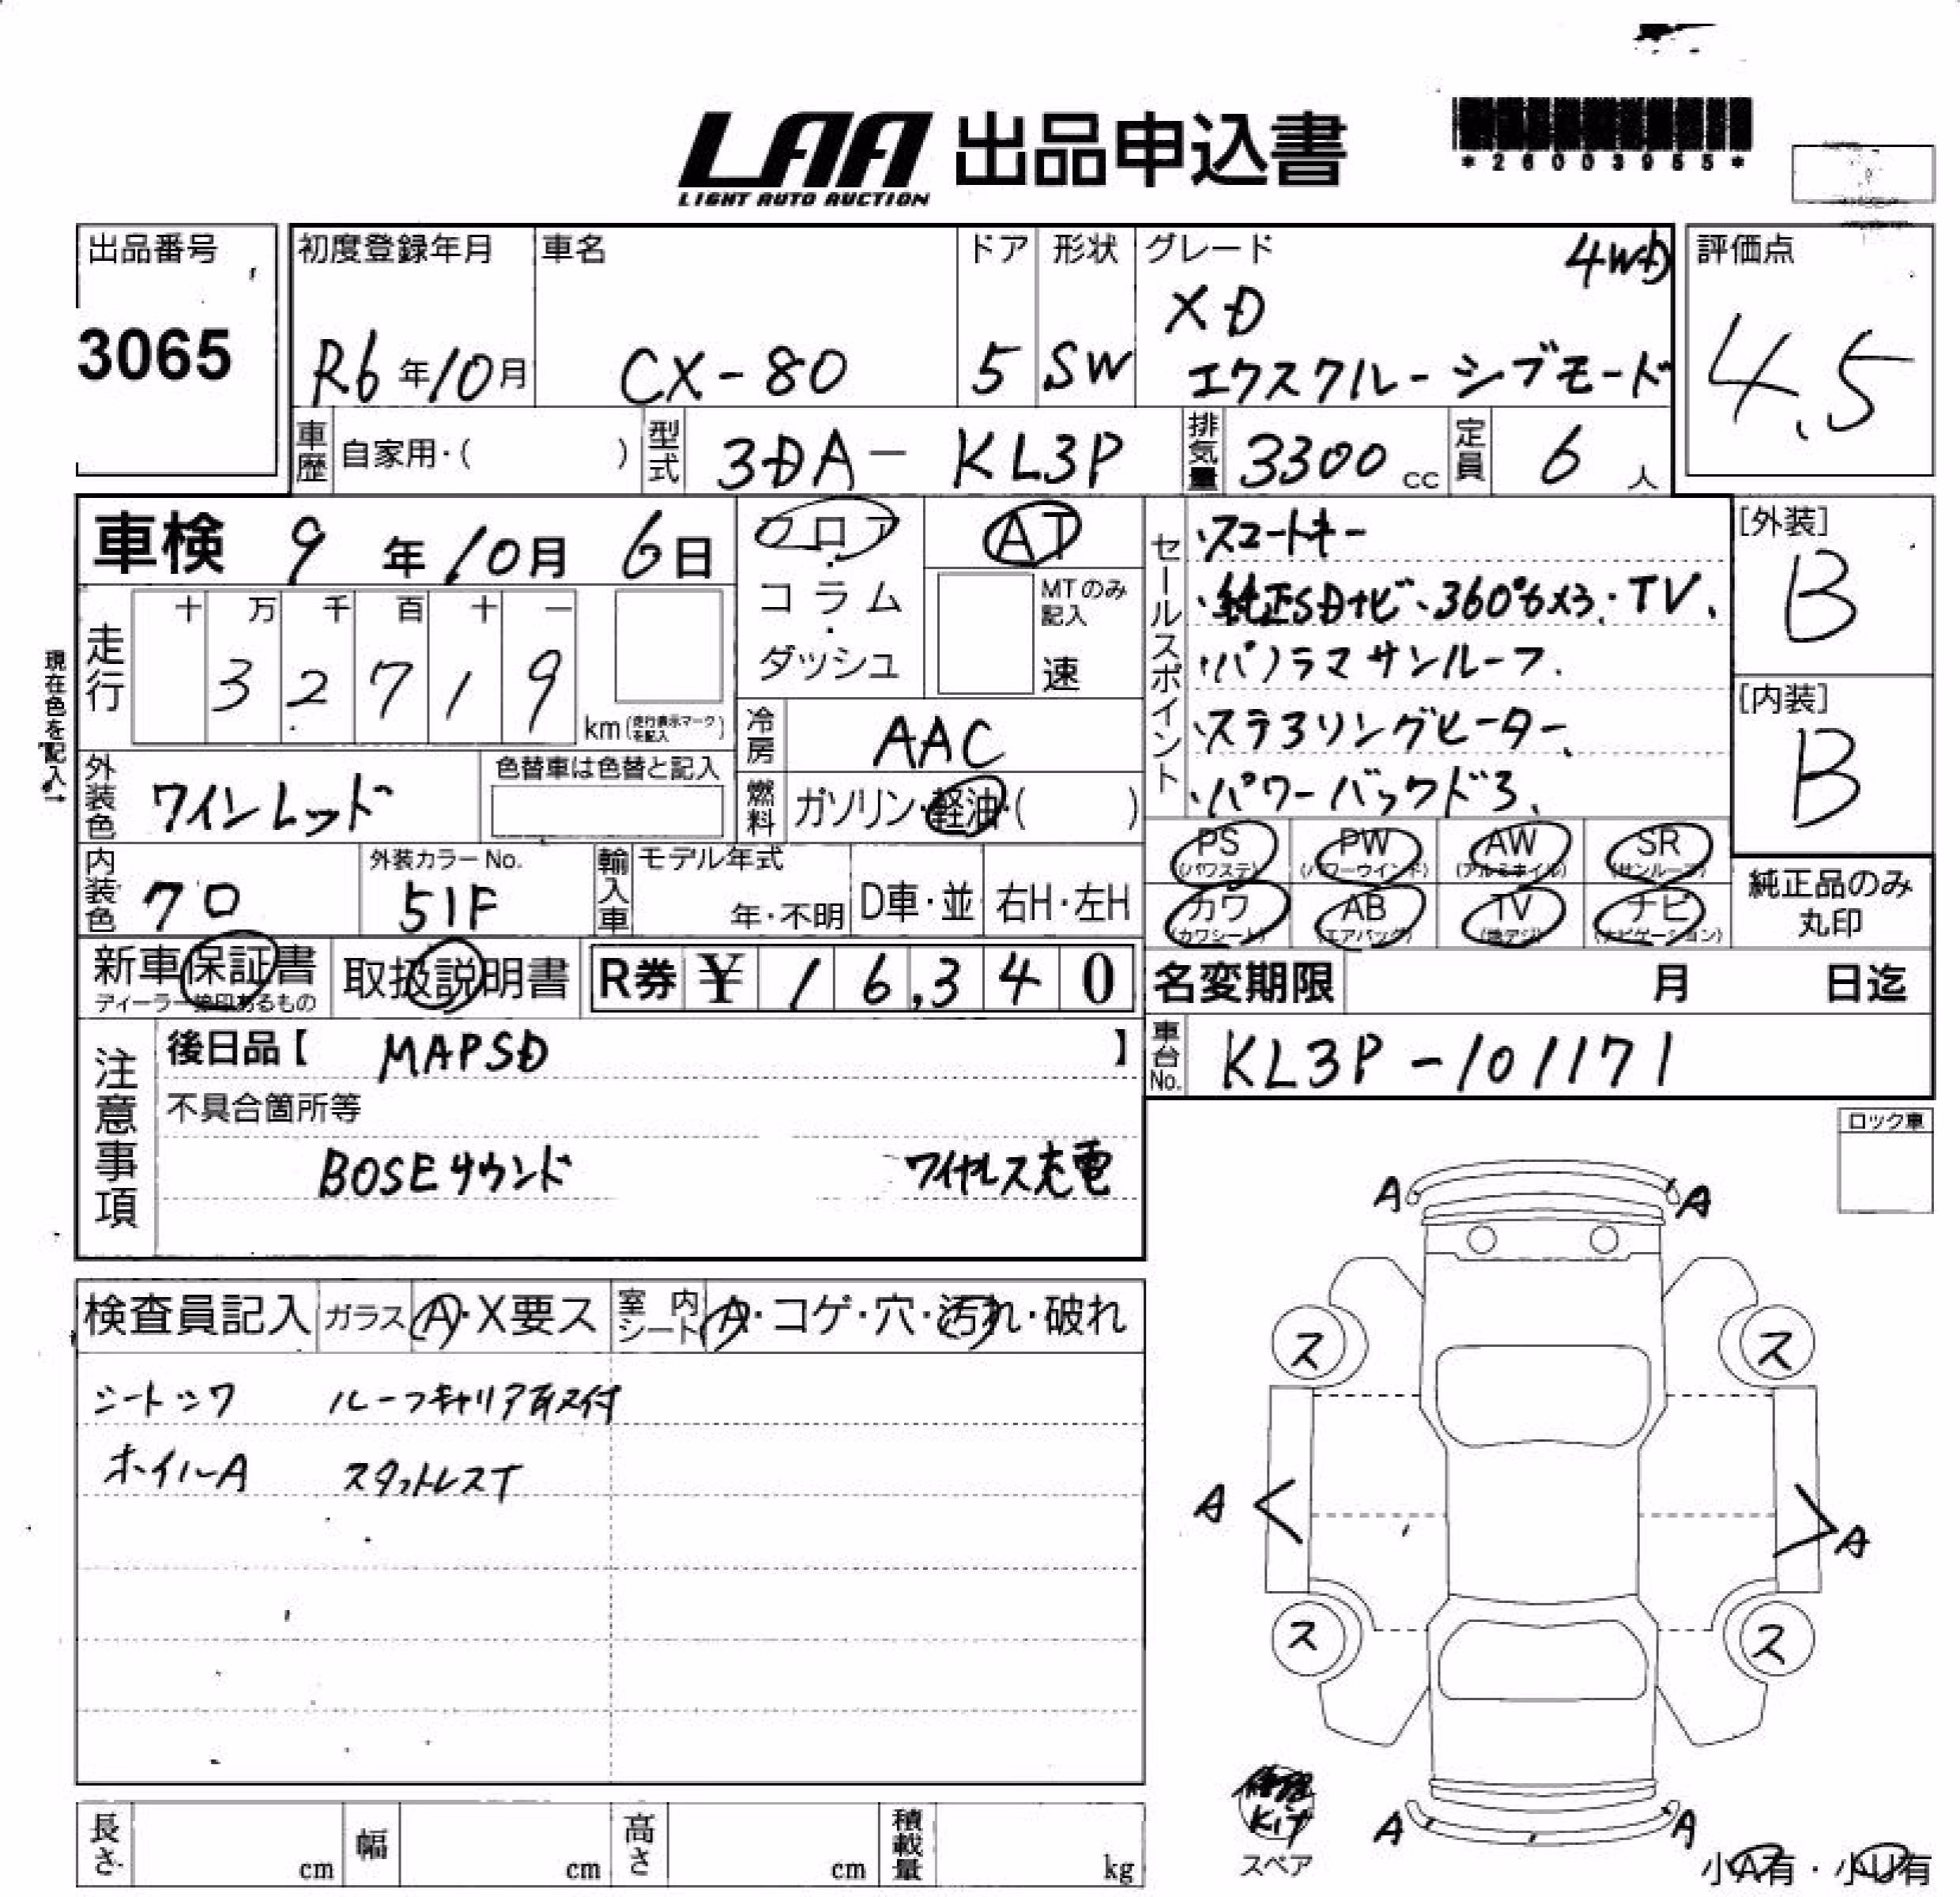 LAA 出品申込書
LIGHT AUTO AUCTION
*26003955*
出品番号
3065
初度登録年月
R6年10月
車名
CX-80
ドア
5
形状
SW
グレード
4WD
XD
エクスクルーシブモード
評価点
4.5
車歴 自家用・( )
型式 3DA-KL3P
排気量 3300cc
定員 6人
車検 9年10月6日
フロア・コラム・ダッシュ
AT
MTのみ記入
速
セールスポイント
・スマートキー
・純正SDナビ、360°カメラ・TV、
・パノラマサンルーフ.
・ステアリングヒーター、
・パワーバックドア、
[外装]
B
[内装]
B
現在色を記入→
走行
十 万 千 百 十 一
3 2 7 1 9
km(走行表示マークを記入)
冷房 AAC
外装色 ワインレッド
色替車は色替と記入
燃料 ガソリン・軽油・( )
PS (パワステ)
PW (パワーウインド)
AW (アルミホイル)
SR (サンルーフ)
カワ (カワシート)
AB (エアバッグ)
TV (地デジ)
ナビ (ナビゲーション)
純正品のみ丸印
内装色 クロ
外装カラーNo.
51F
輸入車
モデル年式
年・不明
D車・並
右H・左H
新車保証書
ディーラー捺印あるもの
取扱説明書
R券 ¥ 16,340
名変期限 月 日迄
車台No. KL3P-101171
注意事項
後日品【 MAPSD 】
不具合箇所等
BOSEサウンド ワイヤレス充電
ロック車
検査員記入 ガラス A・X要ス 室内シート A・コゲ・穴・汚れ・破れ
シートシワ ルーフキャリア取付
ホイルA スタットレスT
A A
ス ス
A A
ス ス
A A
修理Kit
スペア
小A有・小U有
長さ cm
幅 cm
高さ cm
積載量 kg